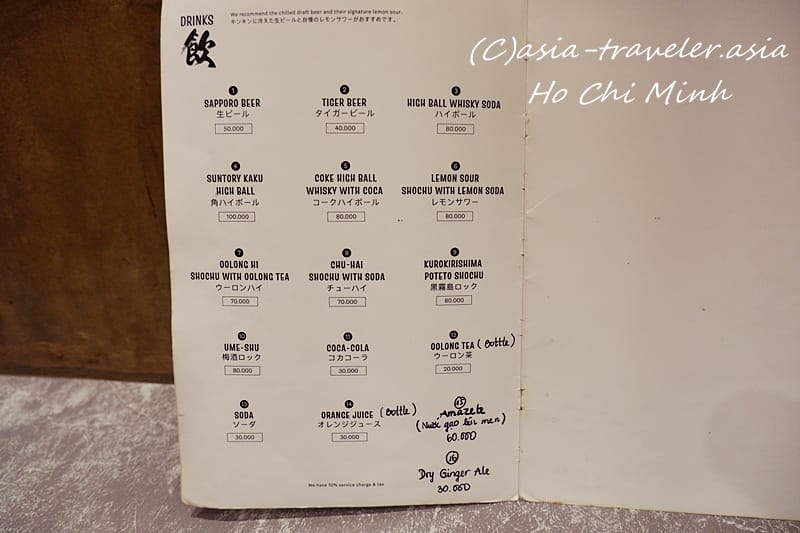 DRINKS
飲
We recommend the chilled draft beer and their signature lemon sour.
キンキンに冷えた生ビールと自慢のレモンサワーがおすすめです。
(C)asia-traveler.asia
Ho Chi Minh
1
SAPPORO BEER
生ビール
50.000
2
TIGER BEER
タイガービール
40.000
3
HIGH BALL WHISKY SODA
ハイボール
80.000
4
SUNTORY KAKU
HIGH BALL
角ハイボール
100.000
5
COKE HIGH BALL
WHISKY WITH COCA
コークハイボール
80.000
6
LEMON SOUR
SHOCHU WITH LEMON SODA
レモンサワー
80.000
7
OOLONG HI
SHOCHU WITH OOLONG TEA
ウーロンハイ
70.000
8
CHU-HAI
SHOCHU WITH SODA
チューハイ
70.000
9
KUROKIRISHIMA
POTETO SHOCHU
黒霧島ロック
80.000
10
UME-SHU
梅酒ロック
80.000
11
COCA-COLA
コカコーラ
30.000
12
OOLONG TEA (Bottle)
ウーロン茶
20.000
13
SODA
ソーダ
30.000
14
ORANGE JUICE (Bottle)
オレンジジュース
30.000
15
Amazake
(Nước gạo lên men)
60.000
16
Dry Ginger Ale
30.000
We have 10% service charge & tax